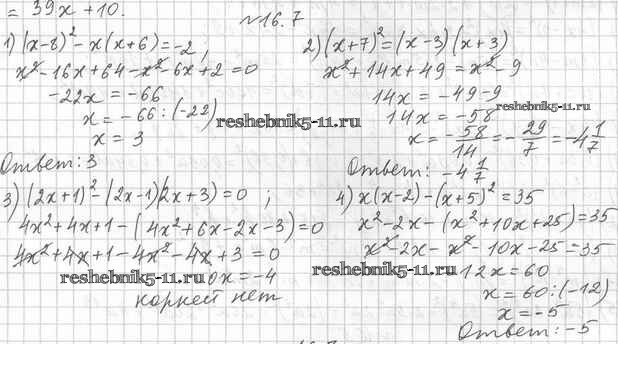 = 39x + 10.
№16.7
1) (x-8)² - x(x+6) = -2 ;
x² - 16x + 64 - x² - 6x + 2 = 0
-22x = -66
x = -66 : (-22)
x = 3
Ответ: 3
2) (x+7)² = (x-3)(x+3)
x² + 14x + 49 = x² - 9
14x = -49 - 9
14x = -58
x = -58/14 = -29/7 = -4 1/7
Ответ: -4 1/7
3) (2x+1)² - (2x-1)(2x+3) = 0 ;
4x² + 4x + 1 - (4x² + 6x - 2x - 3) = 0
4x² + 4x + 1 - 4x² - 4x + 3 = 0
0x = -4
корней нет
4) x(x-2) - (x+5)² = 35
x² - 2x - (x² + 10x + 25) = 35
x² - 2x - x² - 10x - 25 = 35
12x = 60
x = 60 : (-12)
x = -5
Ответ: -5
reshebnik5-11.ru
reshebnik5-11.ru
reshebnik5-11.ru
reshebnik5-11.ru